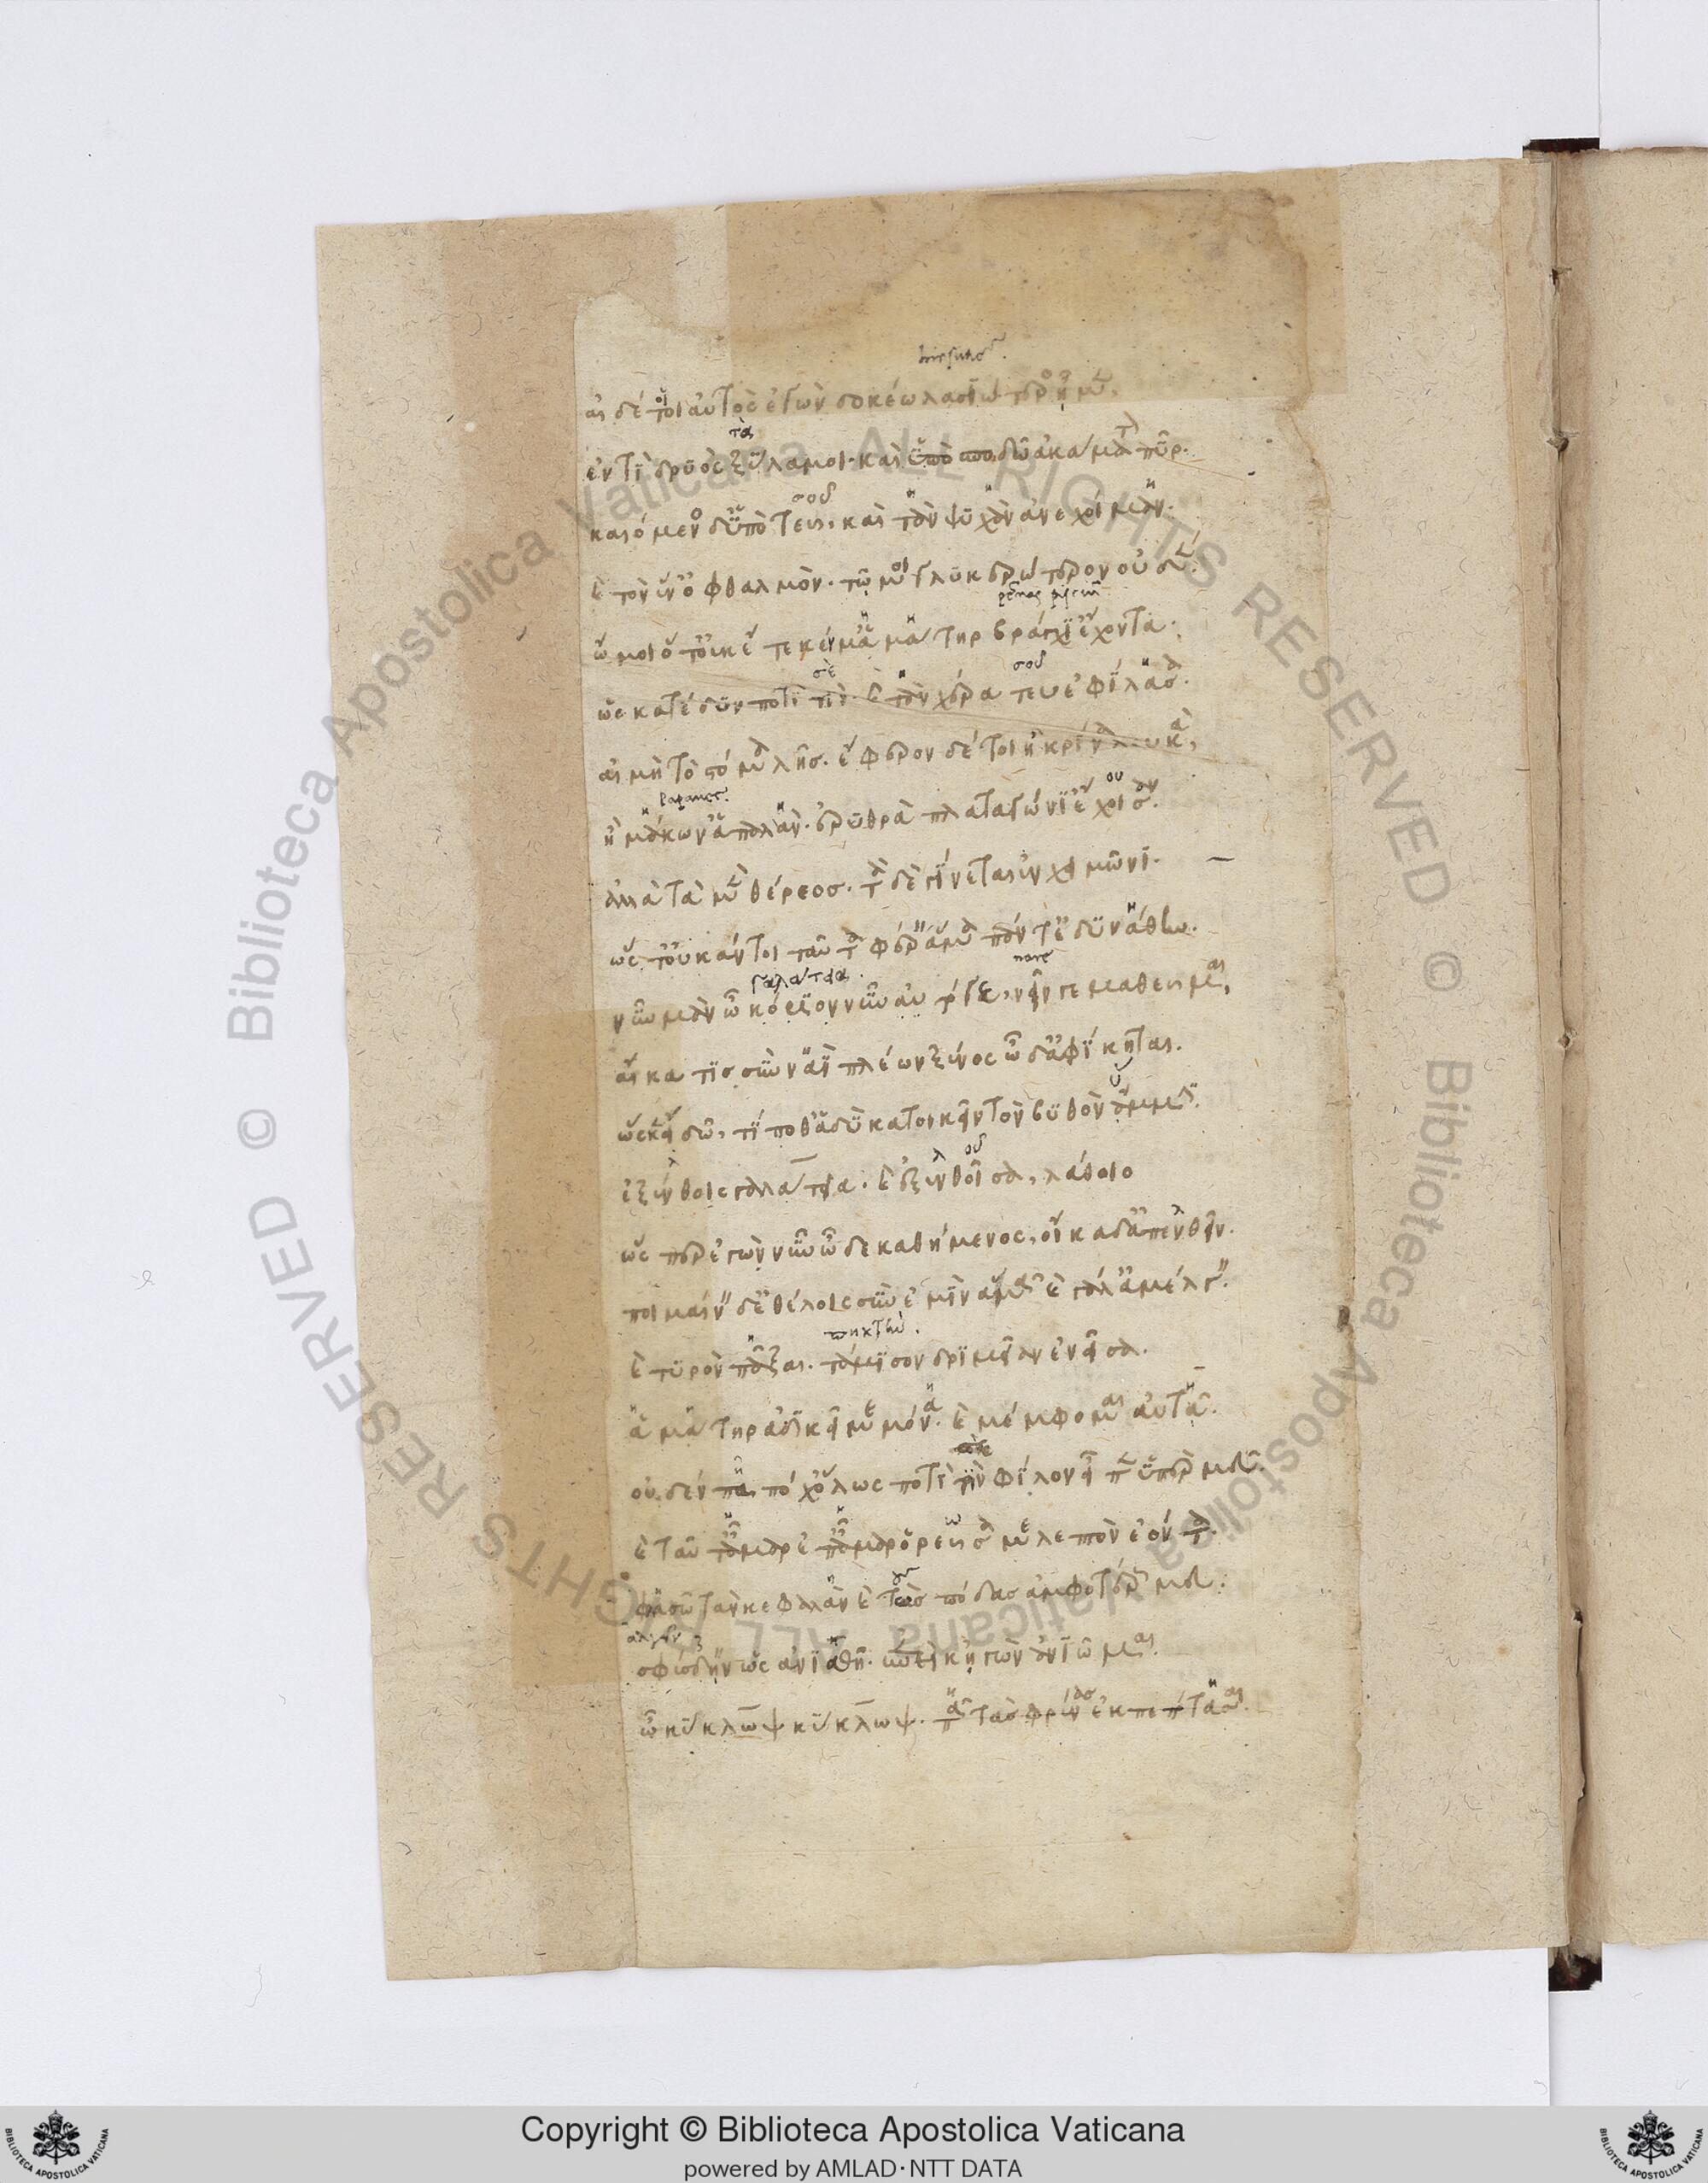 hirsutior
αἰ δέ τοι αὐτὸς ἐγὼν δοκέω λασιώτερος ἦμεν,
τὰ
ἐντὶ δρυὸς ξύλα μοι· καὶ ὑπὸ σποδῶ ἀκάματον πῦρ.
σοῦ
καιόμενος δ' ὑπὸ τεῦς, καὶ τὰν ψυχὰν ἀνεχοίμαν.
καὶ τὸν ἕν' ὀφθαλμὸν· τῶ μοι γλυκερώτερον οὐδέν.
ὤμοι ὅτ' οὐκ ἔτεκέν μ' ἁ μάτηρ βράγχι' ἔχοντα.
σὲ σοῦ
ὡς κατέδυν ποτὶ τίν· καὶ τὰν χέρα τευς ἐφίλασα.
αἰ μὴ τὸ στόμα λῇς. ἔφερον δέ τοι ἢ κρίνα λευκά,
ἢ μάκων' ἁπαλὰν· ἐρυθρὰ πλαταγώνι' ἔχοισαν.
ἀλλὰ τὰ μὲν θέρεος. τὰ δὲ γίνεται ἐν χειμῶνι.
ὥστ' οὐκ ἄν τοι ταῦτα φέρειν ἅμα πάντ' ἐδυνάθην.
γαλάτεια. nare
νῦν μὰν ὦ κόριον νῦν αὐτόγε, νεῖν γε μαθεῦμαι,
αἴ κα τις σὺν ναῒ πλέων ξένος ὧδ' ἀφίκηται.
ὡς κ' εἰδῶ, τί ποθ' ἁδὺ κατοικεῖν τὸν βυθὸν ὔμμιν.
ἐξένθοις γαλάτεια· καὶ ἐξενθοῖσα, λάθοιο
ὥσπερ ἐγὼ νῦν ὧδε καθήμενος, οἴκαδ' ἀπενθεῖν.
ποιμαίνειν δ' ἐθέλοις σὺν ἐμὶν ἅμα καὶ γάλ' ἀμέλγειν.
καὶ τυρὸν πᾶξαι· τάμισον δριμεῖαν ἐνεῖσα.
ἁ μάτηρ ἀδικεῖ με μόνα· καὶ μέμφομαι αὐτᾷ.
οὐδὲν πᾶ πόχ' ὅλως ποτὶ τὶν φίλον εἶπεν ὑπέρ μευ.
καὶ ταῦτ' ἆμαρ ἐπ' ἆμαρ ὁρεῦσά με λεπτὸν ἐόντα.
φασῶ τὰν κεφαλὰν καὶ τὼς πόδας ἀμφοτέρως μευ
σφύσδειν ὡς ἀνιαθῇ· ἐπεὶ κἠγὼν ἀνιῶμαι.
ὦ κύκλωψ κύκλωψ· πᾶ τὰς φρένας ἐκπεπότασαι.
Copyright © Biblioteca Apostolica Vaticana
powered by AMLAD·NTT DATA